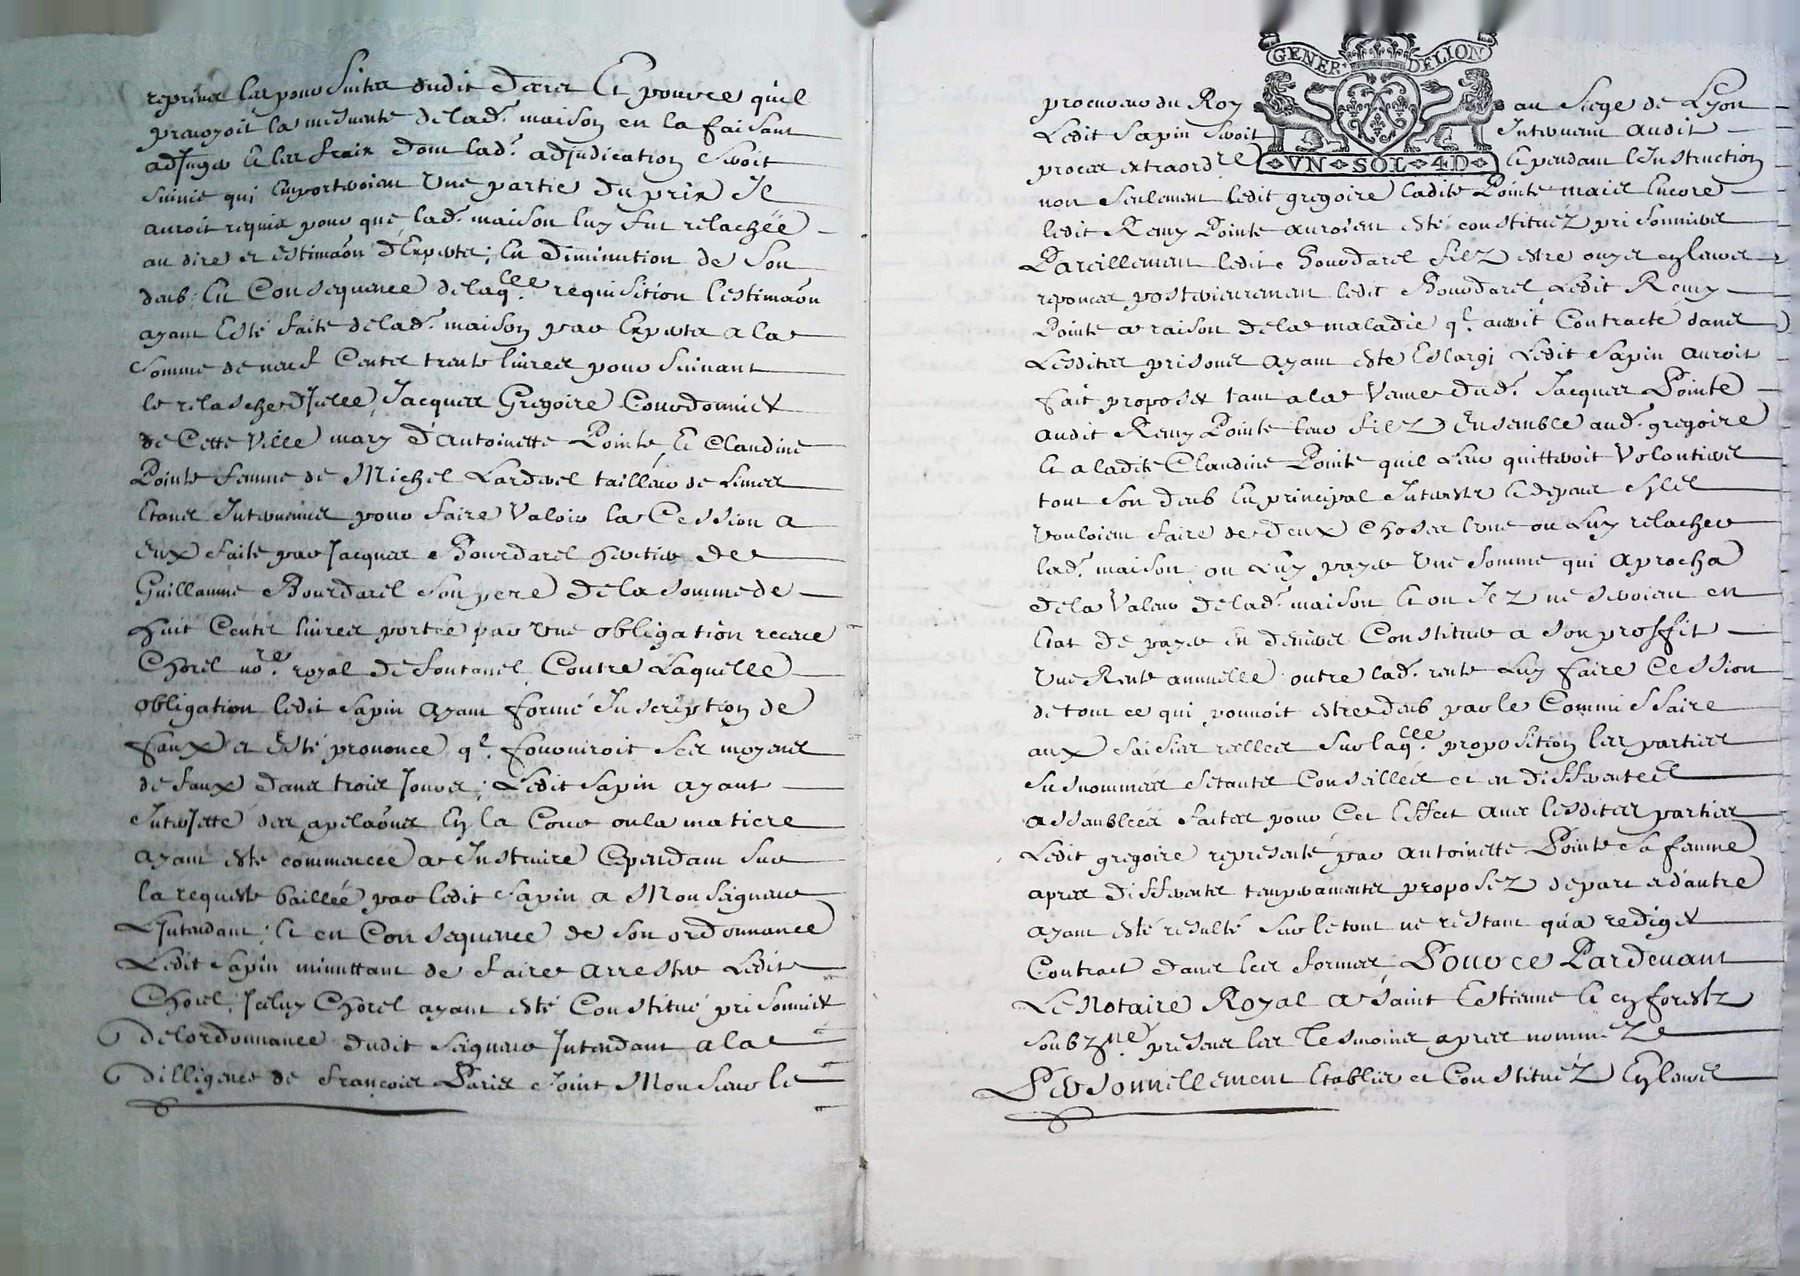 reprinses les poursuittes dudit decret Et pource quil
prevoyoit la mevente de lad. maison en la faisant
adjuger et les fraix dont lad. adjudication seroit
suivie qui Emporteroient Une partie du prix Il
auroit requis pour que lad. maison luy fut relachéé
au dire et estimaôn d'Experts, En diminution de son
deub, En Consequence de laqlle requisition l'estimaôn
ayant Esté faite de lad. maison par Experts a la
somme de neuf Cents trente livres pour suivant
le relasche d'Icelle, Jacques Gregoire Courdonnier
de Cette Ville mary d'Antoinette Pointe, Et Claudine
Pointe femme de Michel Lardret tailleur de Limes
Etans Intervenues pour faire Valoir la Cession a
Eux faite par Jacques Bourdarel heritier de
Guillaume Bourdarel son pere de la somme de
huit Cents livres portée par Une obligation receue
Chorel nore. royal de fontanes Contre Laquelle
obligation ledit Sapin ayant formé Inscription de
faux et Esté prononcé q'. fourniroit ses moyens
de faux dans trois Jours, Ledit Sapin ayant
Interjetté des apelaôns En la Cour ou la matiere
ayant esté commencée a Instruire Cependant sur
la requeste baillée par ledit Sapin a Monseigneur
L'Intendant, Et en Consequence de son ordonnance
Ledit Sapin minuttant de faire arrester Ledit
Chorel, Iceluy Chorel ayant esté Constitué prisonnier
de l'ordonnance dudit Seigneur Intendant a la
dilligence de françois Paris Joint Monsieur le
GENER DELION
VN SOL 4D
procureur du Roy au Siege de Lyon
Ledit Sapin seroit Intervenu audit
proces extraordre Et pendant l'Instruction
non seulement ledit gregoire ladite Pointe mais Encore
ledit Remy Pointe auroient esté constituéz prisonniers
Pareillement ledit Bourdarel filz estre ouyes en leurs
reponces posterieurement ledit Bourdarel, Ledit Remy
Pointe a raison de la maladie q'. auroit Contracté dans
Lesdites prisons ayant esté Eslargi Ledit Sapin auroit
fait proposer tant a la Veuve dud. Jacques Pointe
audit Remy Pointe leur filz Ensemble aud. gregoire
Et a ladite Claudine Pointe quil Leur quitteroit Volontiers
tout son deub En principal Interestz Et depans s'ils
vouloient faire de deux choses l'une ou Luy relacher
lad. maison ou Luy payer Une somme qui aprocha
de la Valeur de lad. maison Et ou Ilz ne seroient en
Etat de payer en deniers Constituer a son proffit
Une Rente annuelle outre lad. rente Luy faire Cession
de tout ce qui pouvoit estre deub par le Commissaire
aux saisies reelles sur laqlle proposition les parties
susnommées s'etants Conseillées et en differentes
assembléés faites pour Cet Effect avec lesdites parties
Ledit gregoire representé par Antoinette Pointe sa femme
apres differents temperaments proposez de part et d'autre
ayant esté resulté sur le tout ne restant qu'a rediger
Contract dans les formes, Pource Pardevant
Le Notaire Royal a Saint Estienne Et en forestz
soubzne. presens les Tesmoins apres nommez
Personnellement Etablies et Constituéz En leurs